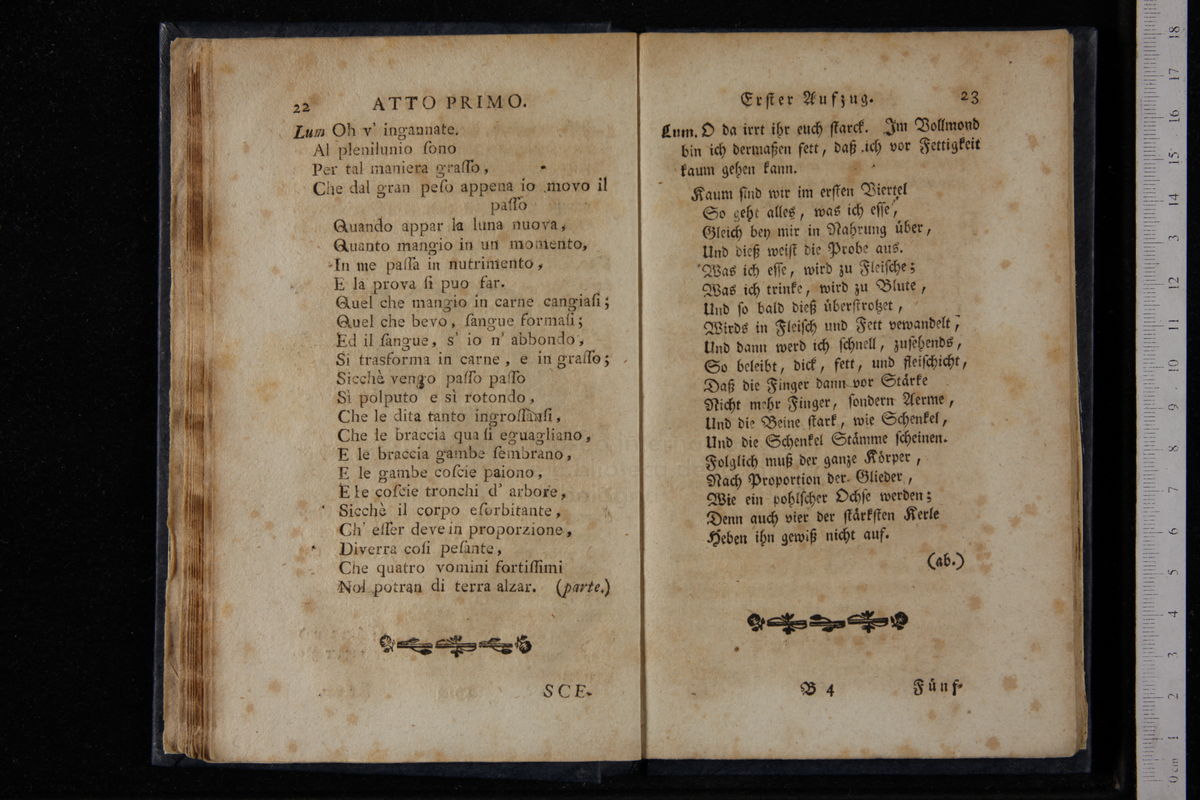 22 ATTO PRIMO.
Lum Oh v' ingannate.
Al plenilunio ſono
Per tal maniera graſſo,
Che dal gran peſo appena io movo il
paſſo
Quando appar la luna nuova,
Quanto mangio in un momento,
In me paſſa in nutrimento,
E la prova ſi puo far.
Quel che mangio in carne cangiaſi;
Quel che bevo, ſangue formaſi;
Ed il ſangue, s' io n' abbondo,
Si trasforma in carne, e in graſſo;
Sicchè vengo paſſo paſſo
Sì polputo e sì rotondo,
Che le dita tanto ingroſſanſi,
Che le braccia quaſi eguagliano,
E le braccia gambe ſembrano,
E le gambe coſcie paiono,
E le coſcie tronchi d' arbore,
Sicchè il corpo eſorbitante,
Ch' eſſer deve in proporzione,
Diverra coſi peſante,
Che quatro vomini fortiſſimi
Nol potran di terra alzar. (parte.)
SCE-
Erſter Aufzug. 23
Lum. O da irrt ihr euch ſtarck. Im Vollmond
bin ich dermaßen fett, daß ich vor Fettigkeit
kaum gehen kann.
Kaum ſind wir im erſten Viertel
So geht alles, was ich eſſe,
Gleich bey mir in Nahrung über,
Und dieß weiſt die Probe aus.
Was ich eſſe, wird zu Fleiſche;
Was ich trinke, wird zu Blute,
Und ſo bald dieß überſtrotzet,
Wirds in Fleiſch und Fett vewandelt,
Und dann werd ich ſchnell, zuſehends,
So beleibt, dick, fett, und fleiſchicht,
Daß die Finger dann vor Stärke
Nicht mehr Finger, ſondern Aerme,
Und die Beine ſtark, wie Schenkel,
Und die Schenkel Stämme ſcheinen.
Folglich muß der ganze Körper,
Nach Proportion der Glieder,
Wie ein pohlſcher Ochſe werden;
Denn auch vier der ſtärkſten Kerle
Heben ihn gewiß nicht auf.
(ab.)
B 4 Fünf-